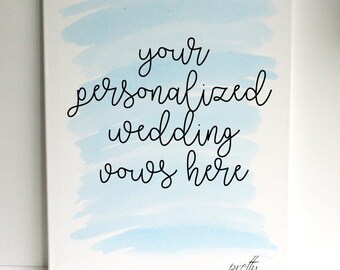 your
personalized
wedding
vows here
pretty